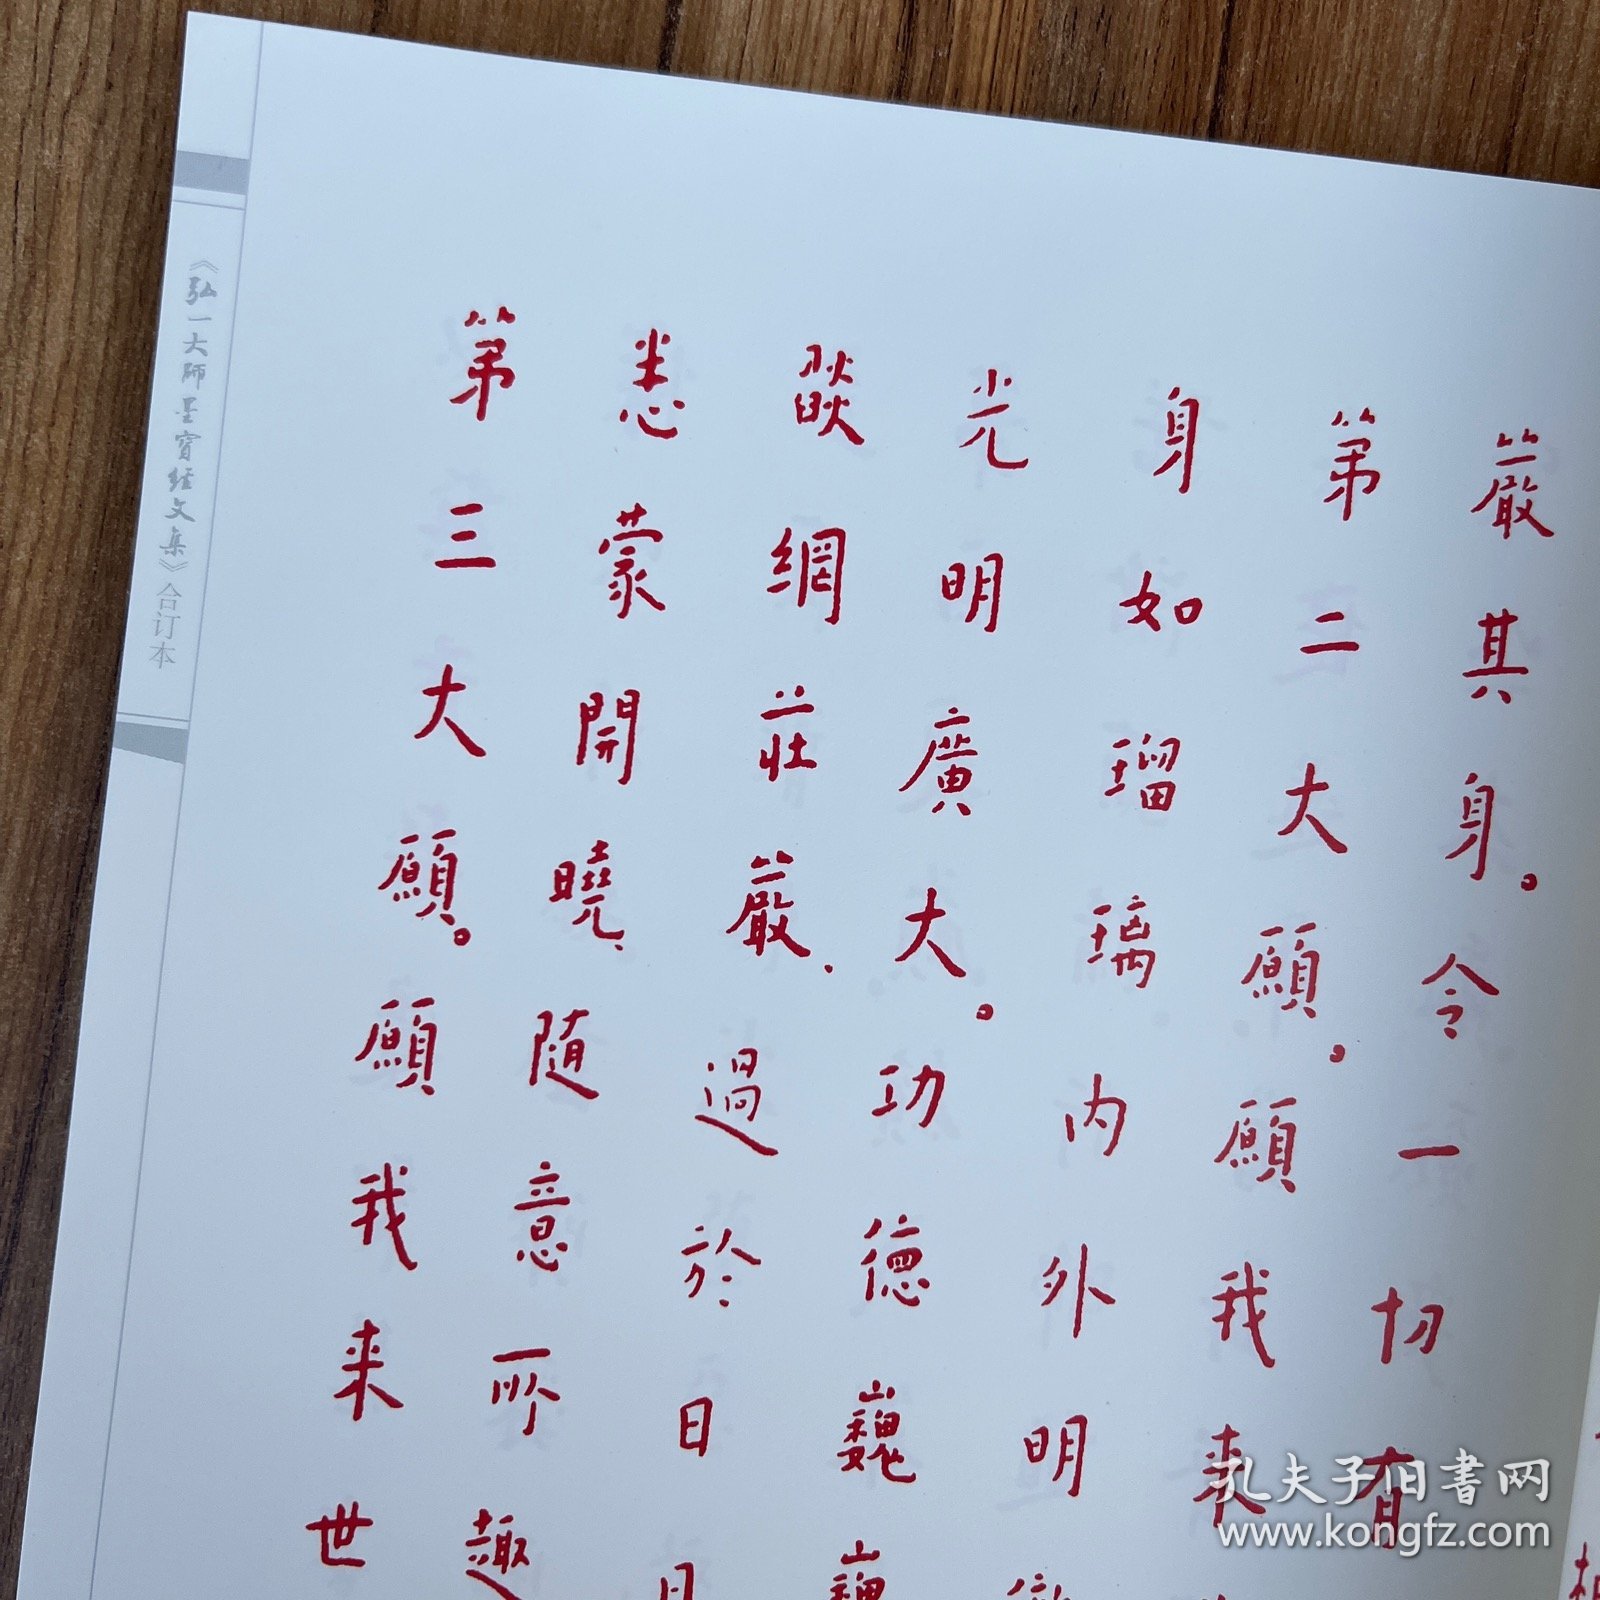 嚴其身。令一切有
第二大願。願我来
身如瑠璃内外明
光明廣大。功德巍巍
燄網莊嚴、過於日月
悉蒙開曉、随意所趣
第三大願。願我来世
《弘一大師墨寶經文集》合订本
孔夫子旧書网
www.kongfz.com